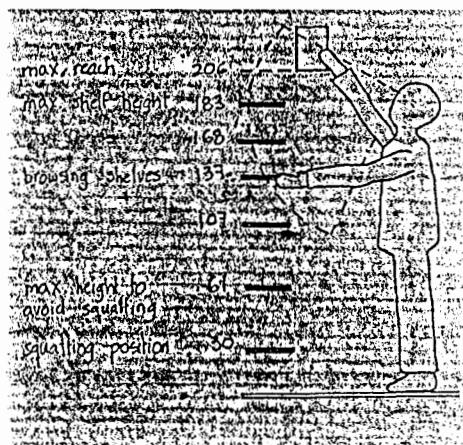 max. reach 206
max shelf height 183
168
browsing shelves 137
107
max. height to 61
avoid squatting
squatting position 30